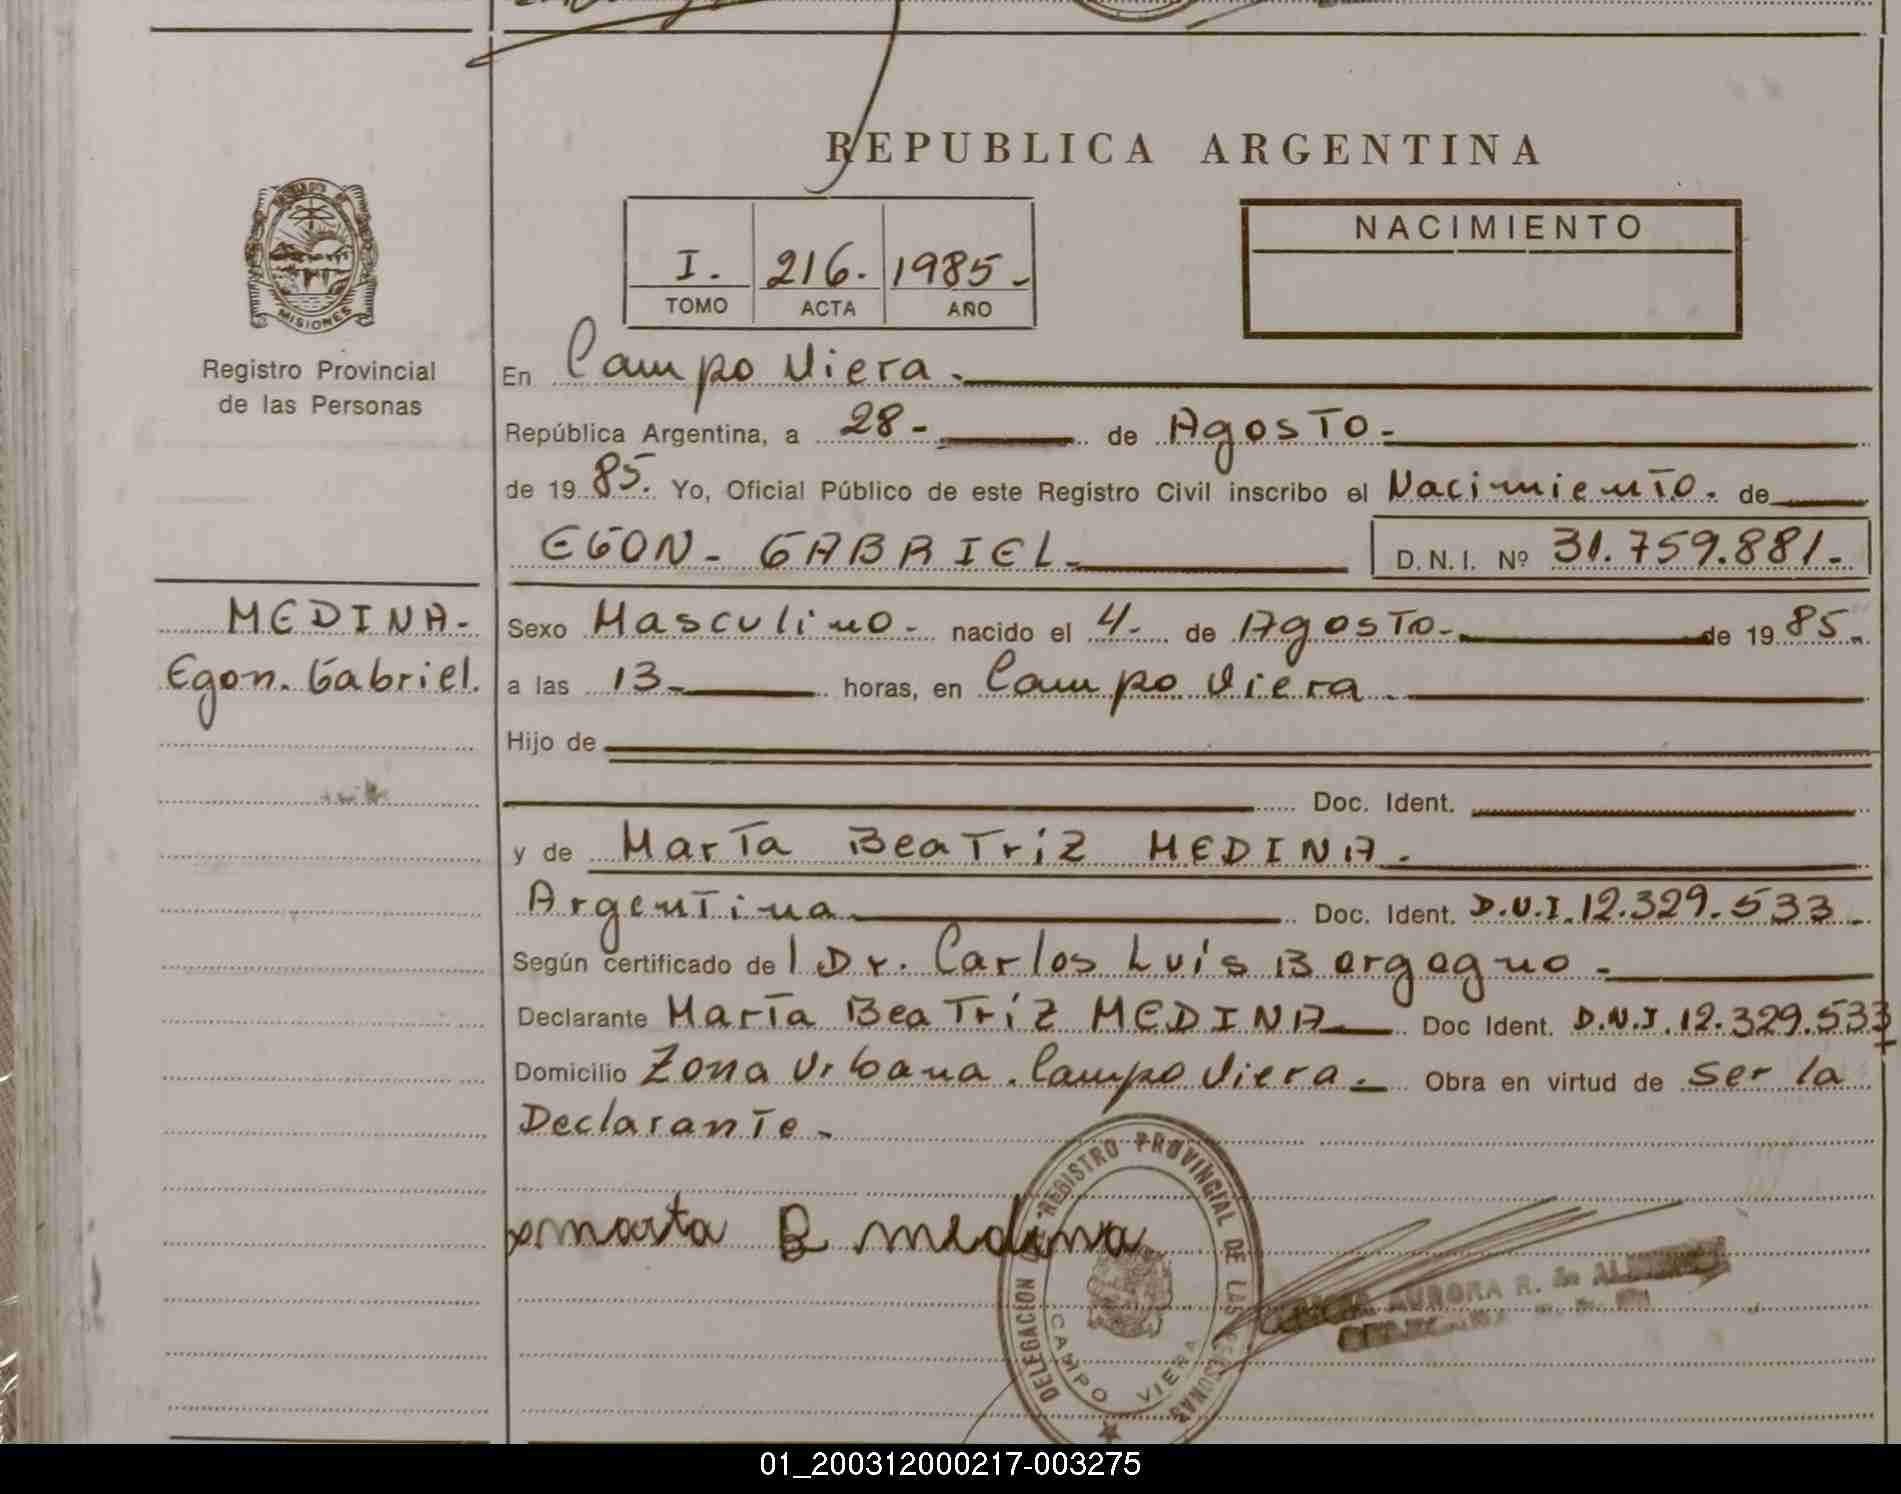 REPUBLICA ARGENTINA
MISIONES
Registro Provincial
de las Personas
I. 216. 1985-
TOMO ACTA AÑO
NACIMIENTO
En Campo Viera.
República Argentina, a 28- de Agosto-
de 19 85. Yo, Oficial Público de este Registro Civil inscribo el Nacimiento. de
EGON- GABRIEL- D.N.I. Nº 31.759.881.-
MEDINA-
Egon. Gabriel.
Sexo Masculino- nacido el 4- de Agosto- de 19 85.-
a las 13- horas, en Campo Viera.
Hijo de
Doc. Ident.
y de Marta Beatriz MEDINA.
Argentina Doc. Ident. D.N.I. 12.329.533-
Según certificado del Dr. Carlos Luis Bergegno-
Declarante Marta Beatriz MEDINA Doc Ident. D.N.I. 12.329.533
Domicilio Zona Urbana. Campo Viera.- Obra en virtud de ser la
Declarante-
x marta B medina
DELEGACION REGISTRO PROVINCIAL DE LAS PERSONAS
CAMPO VIERA
AURORA R. de
01_200312000217-003275